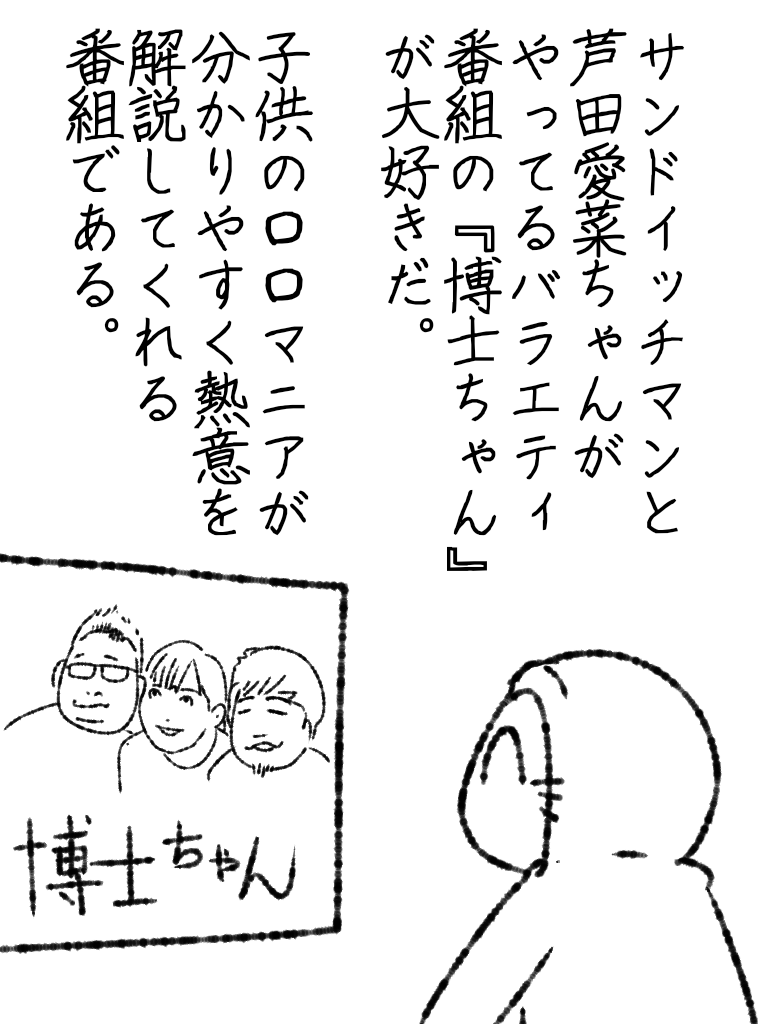 サンドイッチマンと
芦田愛菜ちゃんが
やってるバラエティ
番組の『博士ちゃん』
が大好きだ。
子供の口口マニアが
分かりやすく熱意を
解説してくれる
番組である。
博士ちゃん